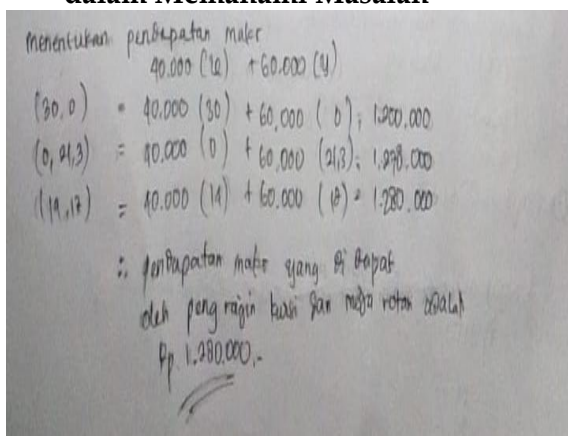 dalam Memahami Masalah
menentukan pendapatan maks
40.000 (x) + 60.000 (y)
(30,0) = 40.000 (30) + 60.000 (0) = 1.200.000
(0, 21,3) = 40.000 (0) + 60.000 (21,3) = 1.278.000
(14,12) = 40.000 (14) + 60.000 (12) = 1.280.000
∴ pendapatan maks yang di dapat
oleh pengrajin kursi dan meja rotan adalah
Rp 1.280.000,-